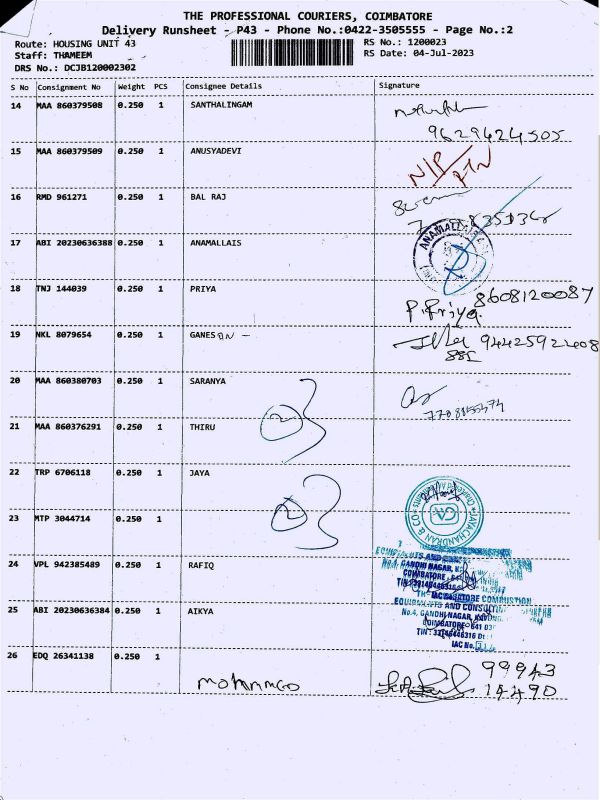 THE PROFESSIONAL COURIERS, COIMBATORE
Delivery Runsheet - P43 - Phone No.:0422-3505555 - Page No.:2
Route: HOUSING UNIT 43 RS No.: 1200023
Staff: THAMEEM RS Date: 04-Jul-2023
DRS No.: DCJB120002302
S No Consignment No Weight PCS Consignee Details Signature
14 MAA 860379508 0.250 1 SANTHALINGAM
9629424505
15 MAA 860379509 0.250 1 ANUSYADEVI
N/P
16 RMD 961271 0.250 1 BAL RAJ
17 ABI 20230636388 0.250 1 ANAMALLAIS
18 TNJ 144039 0.250 1 PRIYA
8608120087
P. Priya.
19 NKL 8079654 0.250 1 GANES
9442592408
20 MAA 860380703 0.250 1 SARANYA
21 MAA 860376291 0.250 1 THIRU
22 TRP 6706118 0.250 1 JAYA
JAYACHANDRAN & CO
CA
23 MTP 3044714 0.250 1
24 VPL 942385489 0.250 1 RAFIQ
No.4, GANDHI NAGAR,
COIMBATORE - 641
COMBUSTION
25 ABI 20230636384 0.250 1 AIKYA
EQUIPMENTS AND CONSULTING
No.4, GANDHI NAGAR,
COIMBATORE - 641
TIN : 33146446316
IAC No.
26 EDQ 26341138 0.250 1
99943
14490